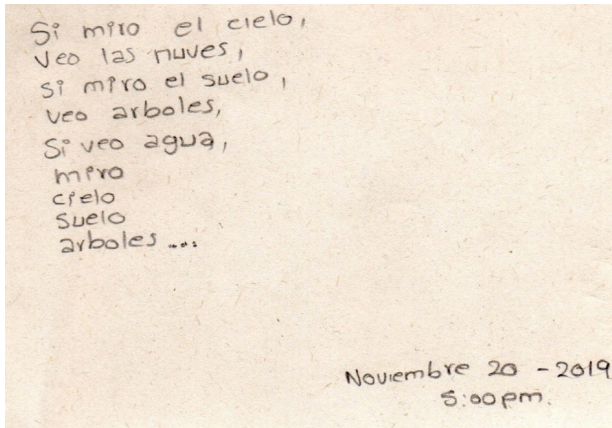 Si miro el cielo,
veo las nuves,
si miro el suelo,
veo arboles,
Si veo agua,
miro
cielo
suelo
arboles ....
Noviembre 20 - 2019
5:00pm.